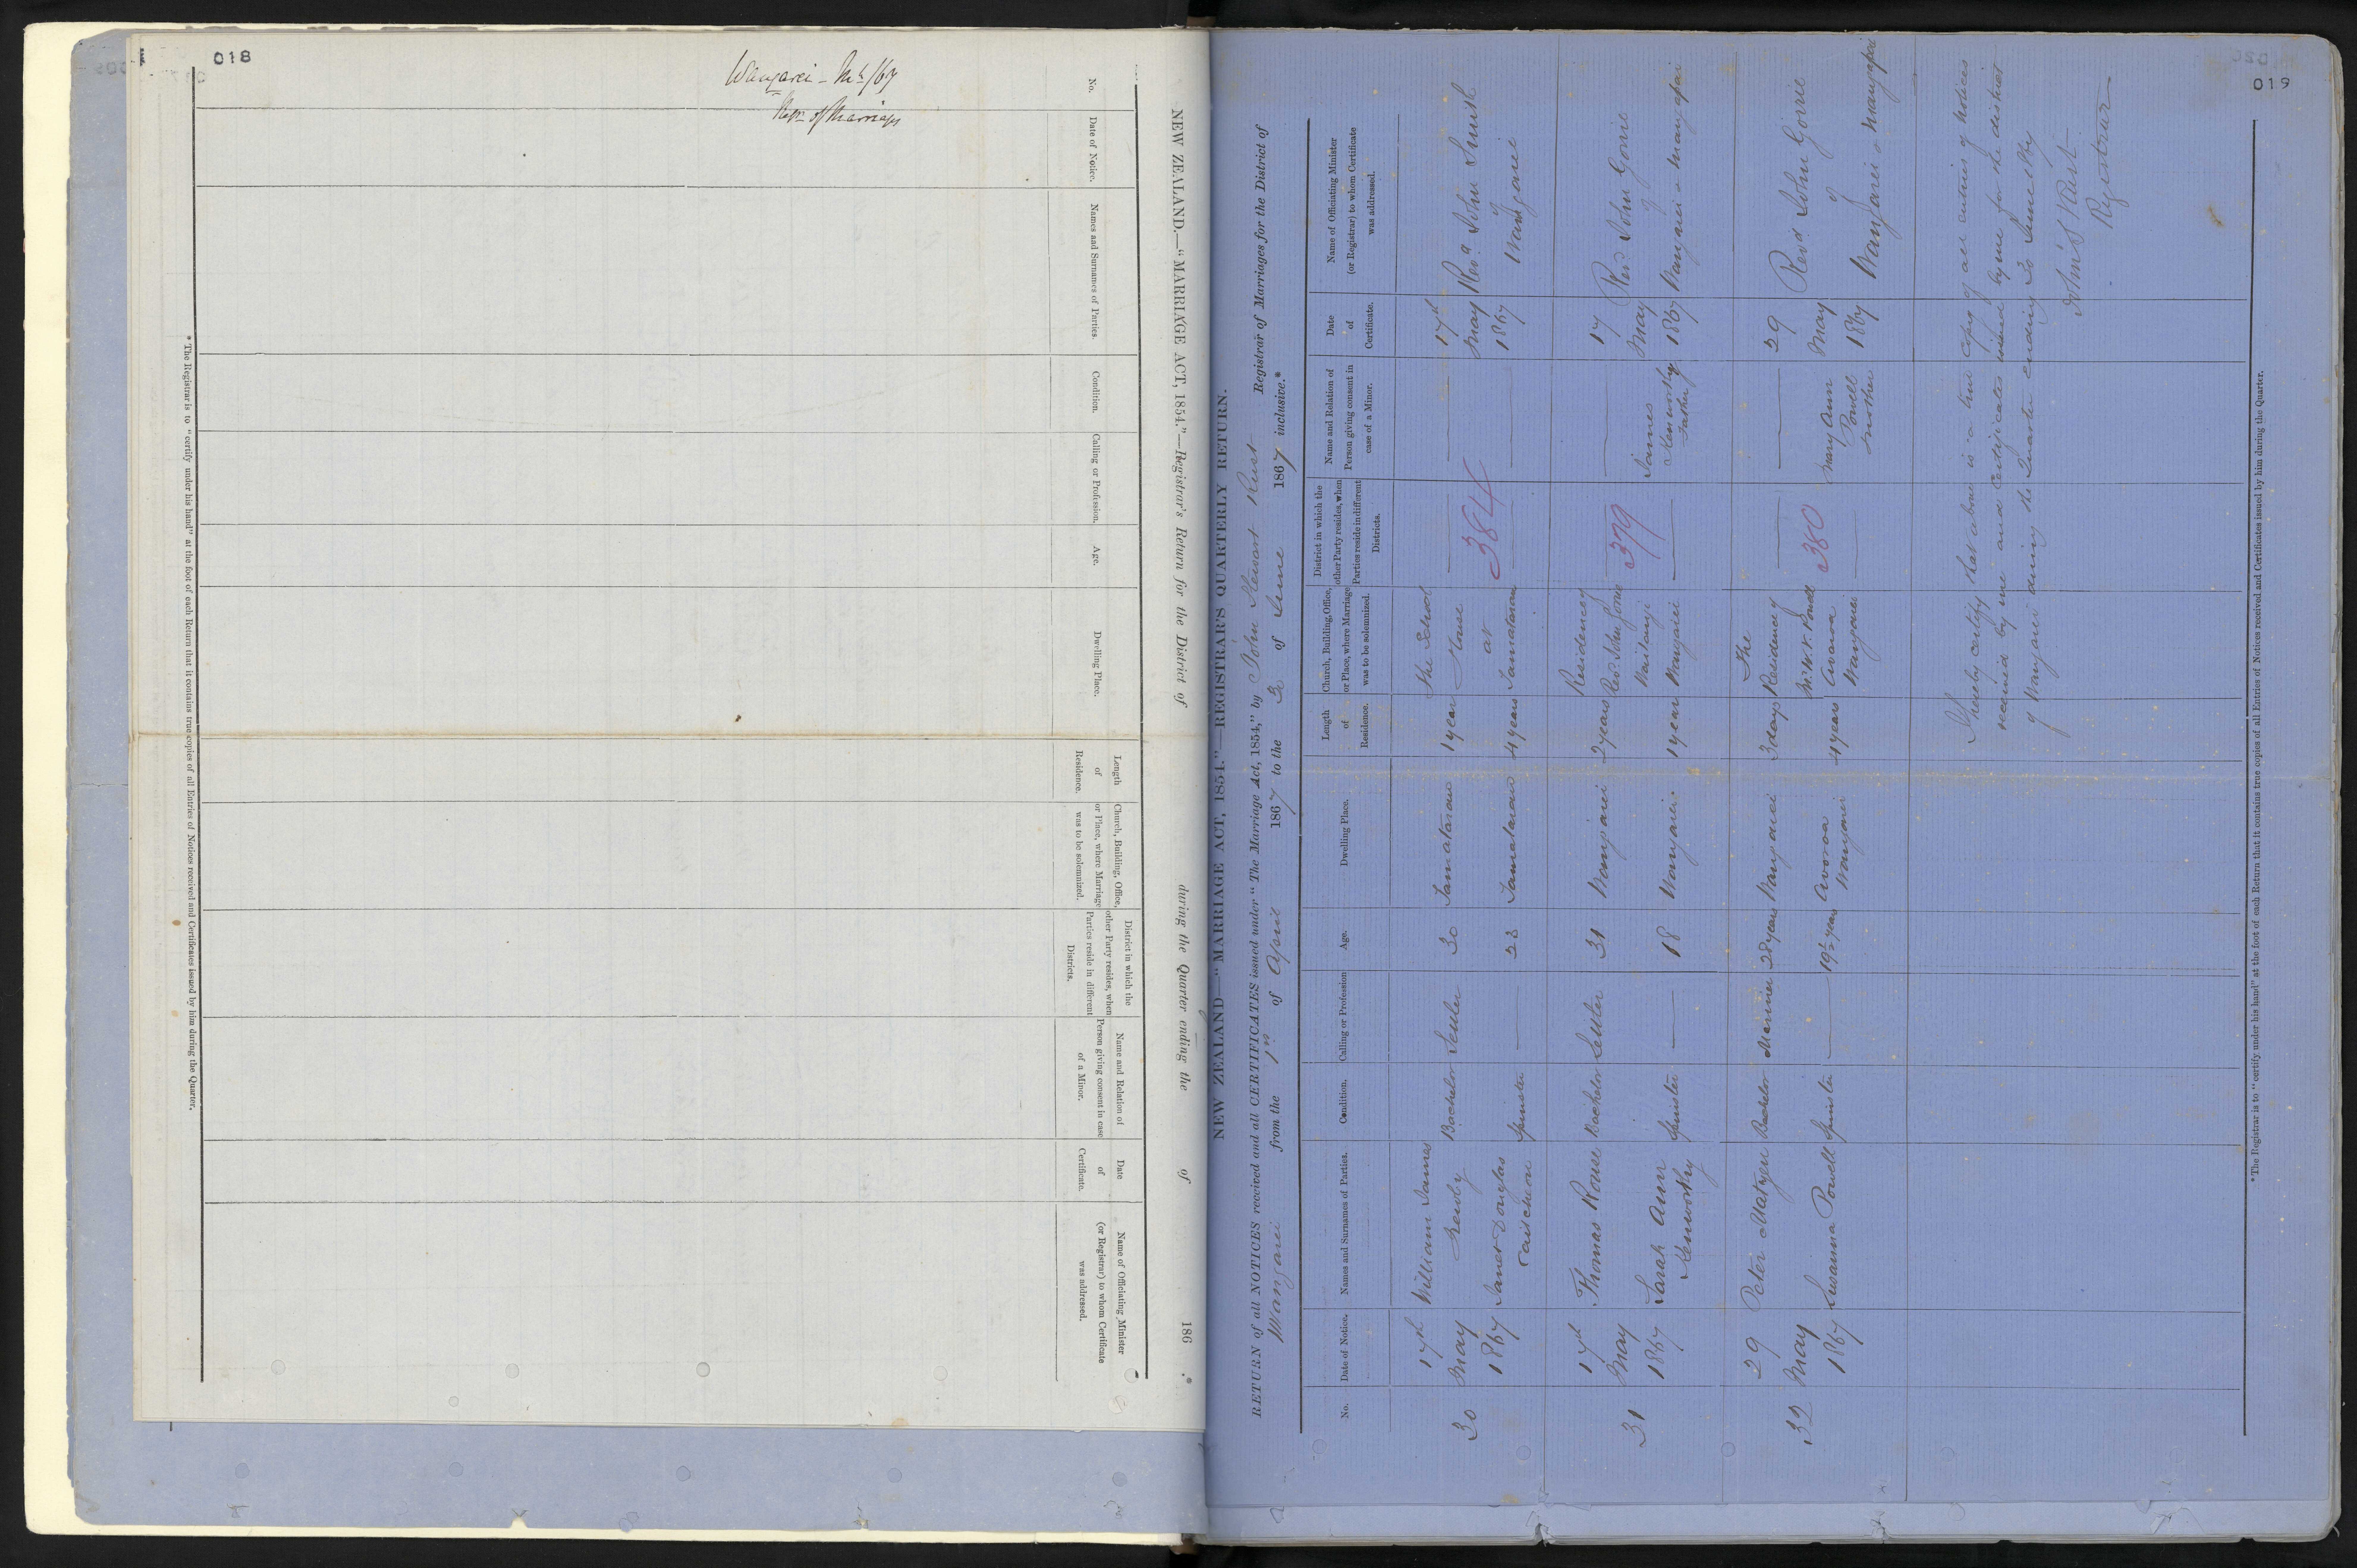 018
Wangarei
of Marriages
NEW ZEALAND.—"MARRIAGE ACT, 1854."—Registrar's Return for the District of during the Quarter ending the of 186 .*
No.
Date of Notice.
Names and Surnames of Parties.
Condition.
Calling or Profession.
Age.
Dwelling Place.
Length of Residence.
Church, Building, Office, or Place, where Marriage was to be solemnized.
District in which the other Party resides, when Parties reside in different Districts.
Name and Relation of Person giving consent in case of a Minor.
Date of Certificate.
Name of Officiating Minister (or Registrar) to whom Certificate was addressed.
* The Registrar is to "certify under his hand" at the foot of each Return that it contains true copies of all Entries of Notices received and Certificates issued by him during the Quarter.
019
NEW ZEALAND—"MARRIAGE ACT, 1854."—REGISTRAR'S QUARTERLY RETURN.
RETURN of all NOTICES received and all CERTIFICATES issued under "The Marriage Act, 1854," by John Stewart Rust Registrar of Marriages for the District of
Wangarei from the 1st of April 1867 to the 30 of June 1867 inclusive.*
No.
Date of Notice.
Names and Surnames of Parties.
Condition.
Calling or Profession
Age.
Dwelling Place.
Length of Residence.
Church, Building, Office, or Place, where Marriage was to be solemnized.
District in which the other Party resides, when Parties reside in different Districts.
Name and Relation of Person giving consent in case of a Minor.
Date of Certificate.
Name of Officiating Minister (or Registrar) to whom Certificate was addressed.
30
17th May 1867
William James
Bachelor
Settler
30
Tamatarau
1 year
The School House at Tamatarau
384
17th May 1867
Revd. John Smith of Wangarei
Janet Douglas
Spinster
23
Tamatarau
4 years
31
17th May 1867
Thomas Rouse
Bachelor
Settler
31
Wangarei
2 years
Residency Revd John Gorrie Waitangi Wangarei
379
17 May 1867
Revd John Gorrie of Wangarei & Maungapai
Sarah Ann Kenworthy
Spinster
18
Wangarei
1 year
James Kenworthy Father
32
29 May 1867
Peter
Bachelor
Mariner
28 years
Wangarei
3 days
The Residency Powell Avoroa Wangarei
380
29 May 1867
Revd. John Gorrie of Wangarei & Maungapai
Susanna Powell
Spinster
19½ years
Avoroa Wangarei
4 years
Mary Ann Powell Mother
I hereby certify that above is a true copy of all entries of notices
received by me and certificates issued by me for the district
of Wangarei during the Quarter ending 30 June 1867
John S Rust
Registrar
*The Registrar is to "certify under his hand" at the foot of each Return that it contains true copies of all Entries of Notices received and Certificates issued by him during the Quarter.